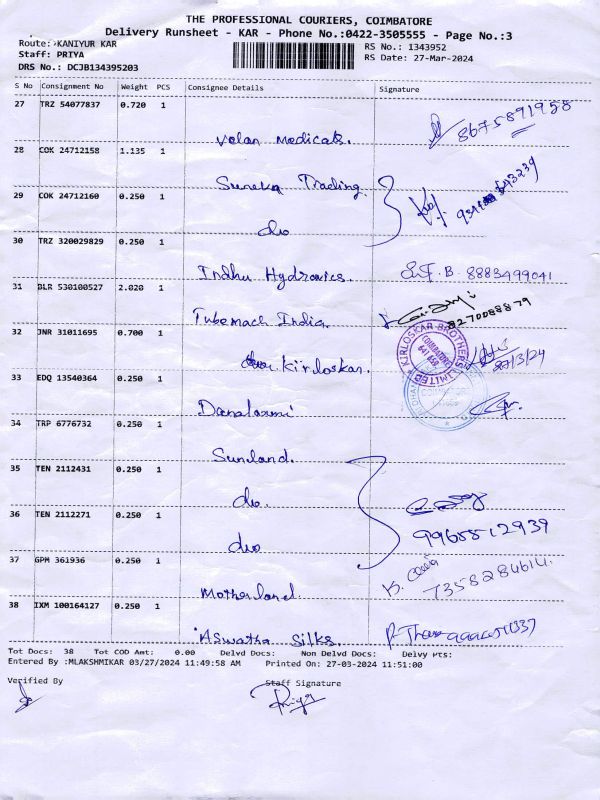 THE PROFESSIONAL COURIERS, COIMBATORE
Delivery Runsheet - KAR - Phone No.:0422-3505555 - Page No.:3
Route: KANIYUR KAR
RS No.: 1343952
Staff: PRIYA
RS Date: 27-Mar-2024
DRS No.: DCJB134395203
S No Consignment No Weight PCS Consignee Details Signature
27 TRZ 54077837 0.720 1
Velan Medicals. 8675891958
28 COK 24712158 1.135 1
Sureka Trading.
29 COK 24712160 0.250 1
do
30 TRZ 320029829 0.250 1
Indhu Hydronics. B. 8883499041
31 BLR 530100527 2.020 1
Tubemach India. 8270088879
32 JNR 31011695 0.700 1
KIRLOSKAR BROTHERS LIMITED
COIMBATORE
Kirloskar. 27/3/24
33 EDQ 13540364 0.250 1
Danalaxmi
34 TRP 6776732 0.250 1
Sunland.
35 TEN 2112431 0.250 1
do.
36 TEN 2112271 0.250 1
do 9965512939
37 GPM 361936 0.250 1
Motherland. 7358284614.
38 IXM 100164127 0.250 1
Aswatha Silks.
Tot Docs: 38 Tot COD Amt: 0.00 Delvd Docs: Non Delvd Docs: Delvy Pts:
Entered By :MLAKSHMIKAR 03/27/2024 11:49:58 AM Printed On: 27-03-2024 11:51:00
Verified By Staff Signature
Priya